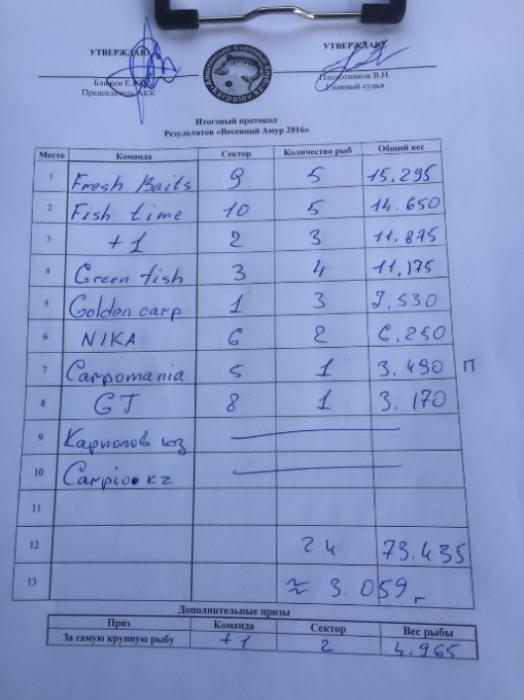 УТВЕРЖДАЮ УТВЕРЖДАЮ
Плохотников В.Н.
Председатель АКК Главный судья
Итоговый протокол
Результатов «Весенний Амур 2016»
Место Команда Сектор Количество рыб Общий вес
1 Fresh Baits 9 5 15.295
2 Fish time 10 5 14.650
3 +1 2 3 11.875
4 Green fish 3 4 11,175
5 Golden carp 1 3 7,530
6 NIKA 6 2 6.250
7 Carpomania 5 1 3.490 П
8 GT 8 1 3.170
9 Карполов юз
10 Carpio kz
11
12 24 73.435
13 ≈ 3.059 г
Дополнительные призы
Приз Команда Сектор Вес рыбы
За самую крупную рыбу +1 2 4,965